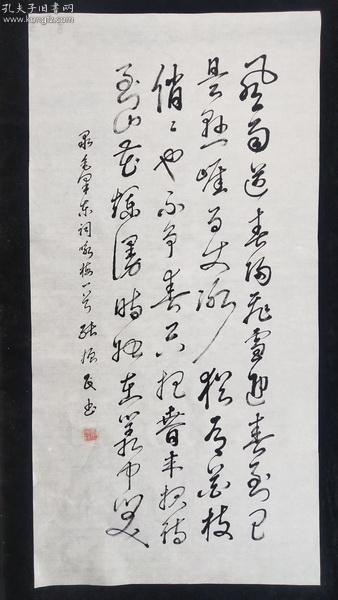 孔夫子旧书网
www.kongfz.com
风雨送春归飞雪迎春到已
是悬崖百丈冰犹有花枝
俏俏也不争春只把春来报待
到山花烂漫时她在丛中笑
录毛泽东词咏梅一首 张振民书